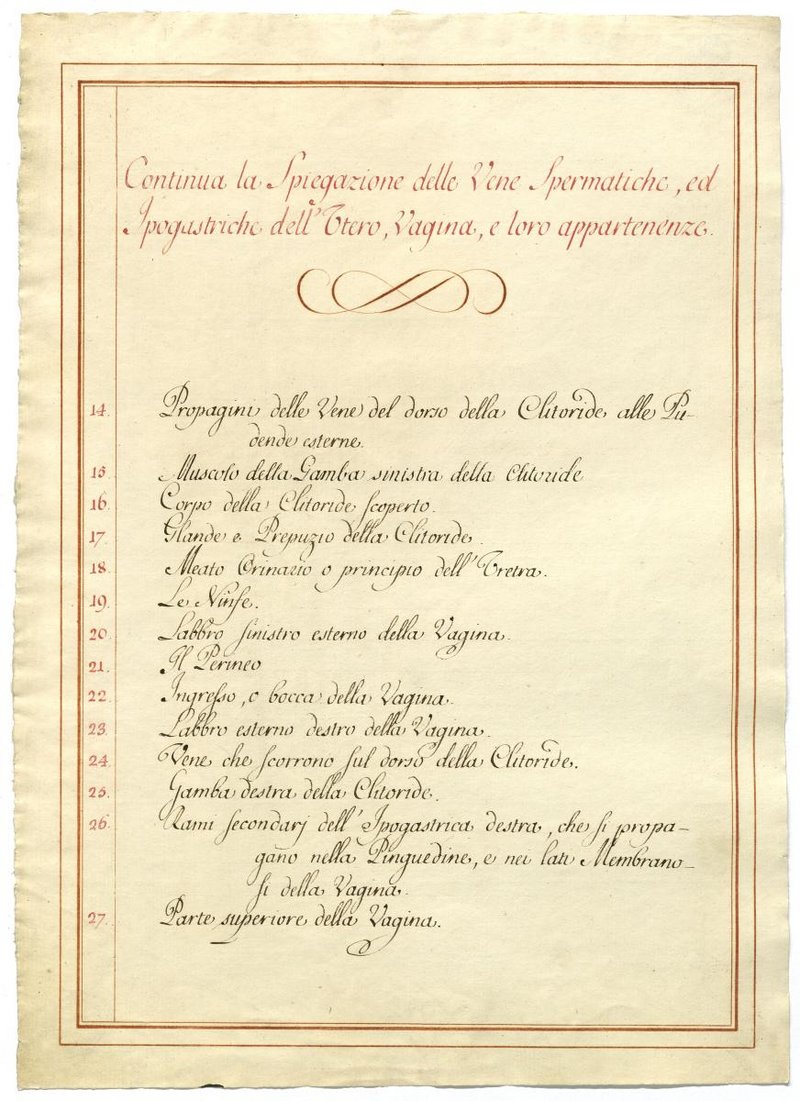 Continua la Spiegazione delle Vene Spermatiche, ed
Ipogastriche dell'Utero, Vagina, e loro appartenenze.
14. Propagini delle Vene del dorso della Clitoride alle Pu-
dende esterne.
15. Muscolo della Gamba sinistra della Clitoride
16. Corpo della Clitoride scoperto.
17. Glande e Prepuzio della Clitoride.
18. Meato Orinario o principio dell'Uretra.
19. Le Ninfe.
20. Labbro sinistro esterno della Vagina.
21. Il Perineo
22. Ingresso, o bocca della Vagina.
23. Labbro esterno destro della Vagina.
24. Vene che scorrono sul dorso della Clitoride.
25. Gamba destra della Clitoride.
26. Rami secondarj dell'Ipogastrica destra, che si propa-
gano nella Pinguedine, e nei lati Membrano-
si della Vagina.
27. Parte superiore della Vagina.